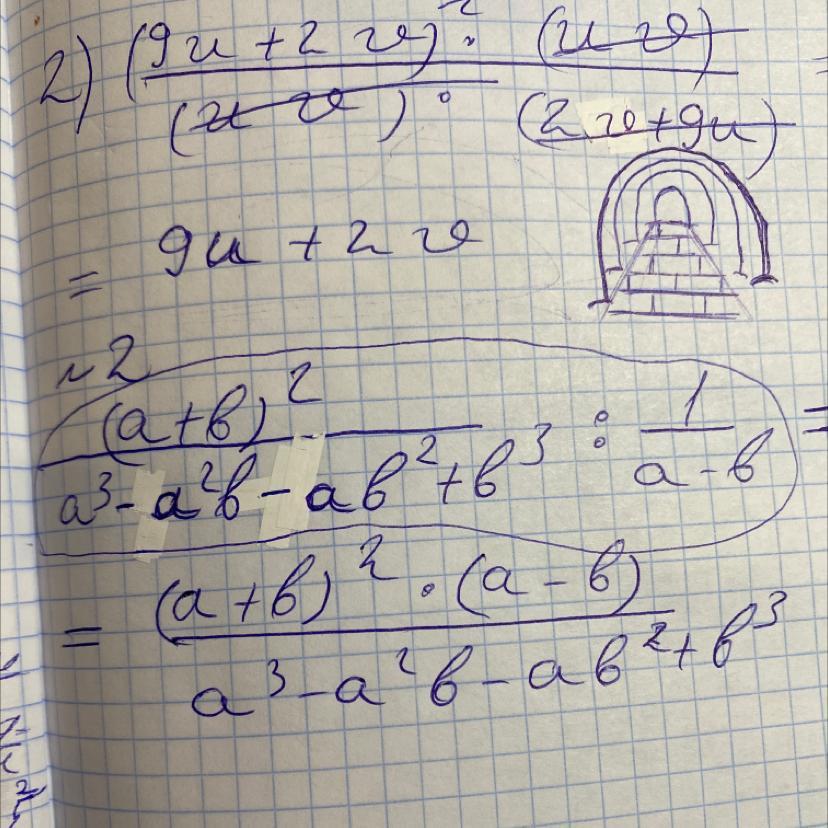 2) (9u + 2v)² · (u v) =
(u v) · (2v + 9u)
= 9u + 2v
№2
(a+b)² : 1 =
a³ - a²b - ab² + b³ a - b
= (a + b)² · (a - b)
a³ - a²b - ab² + b³